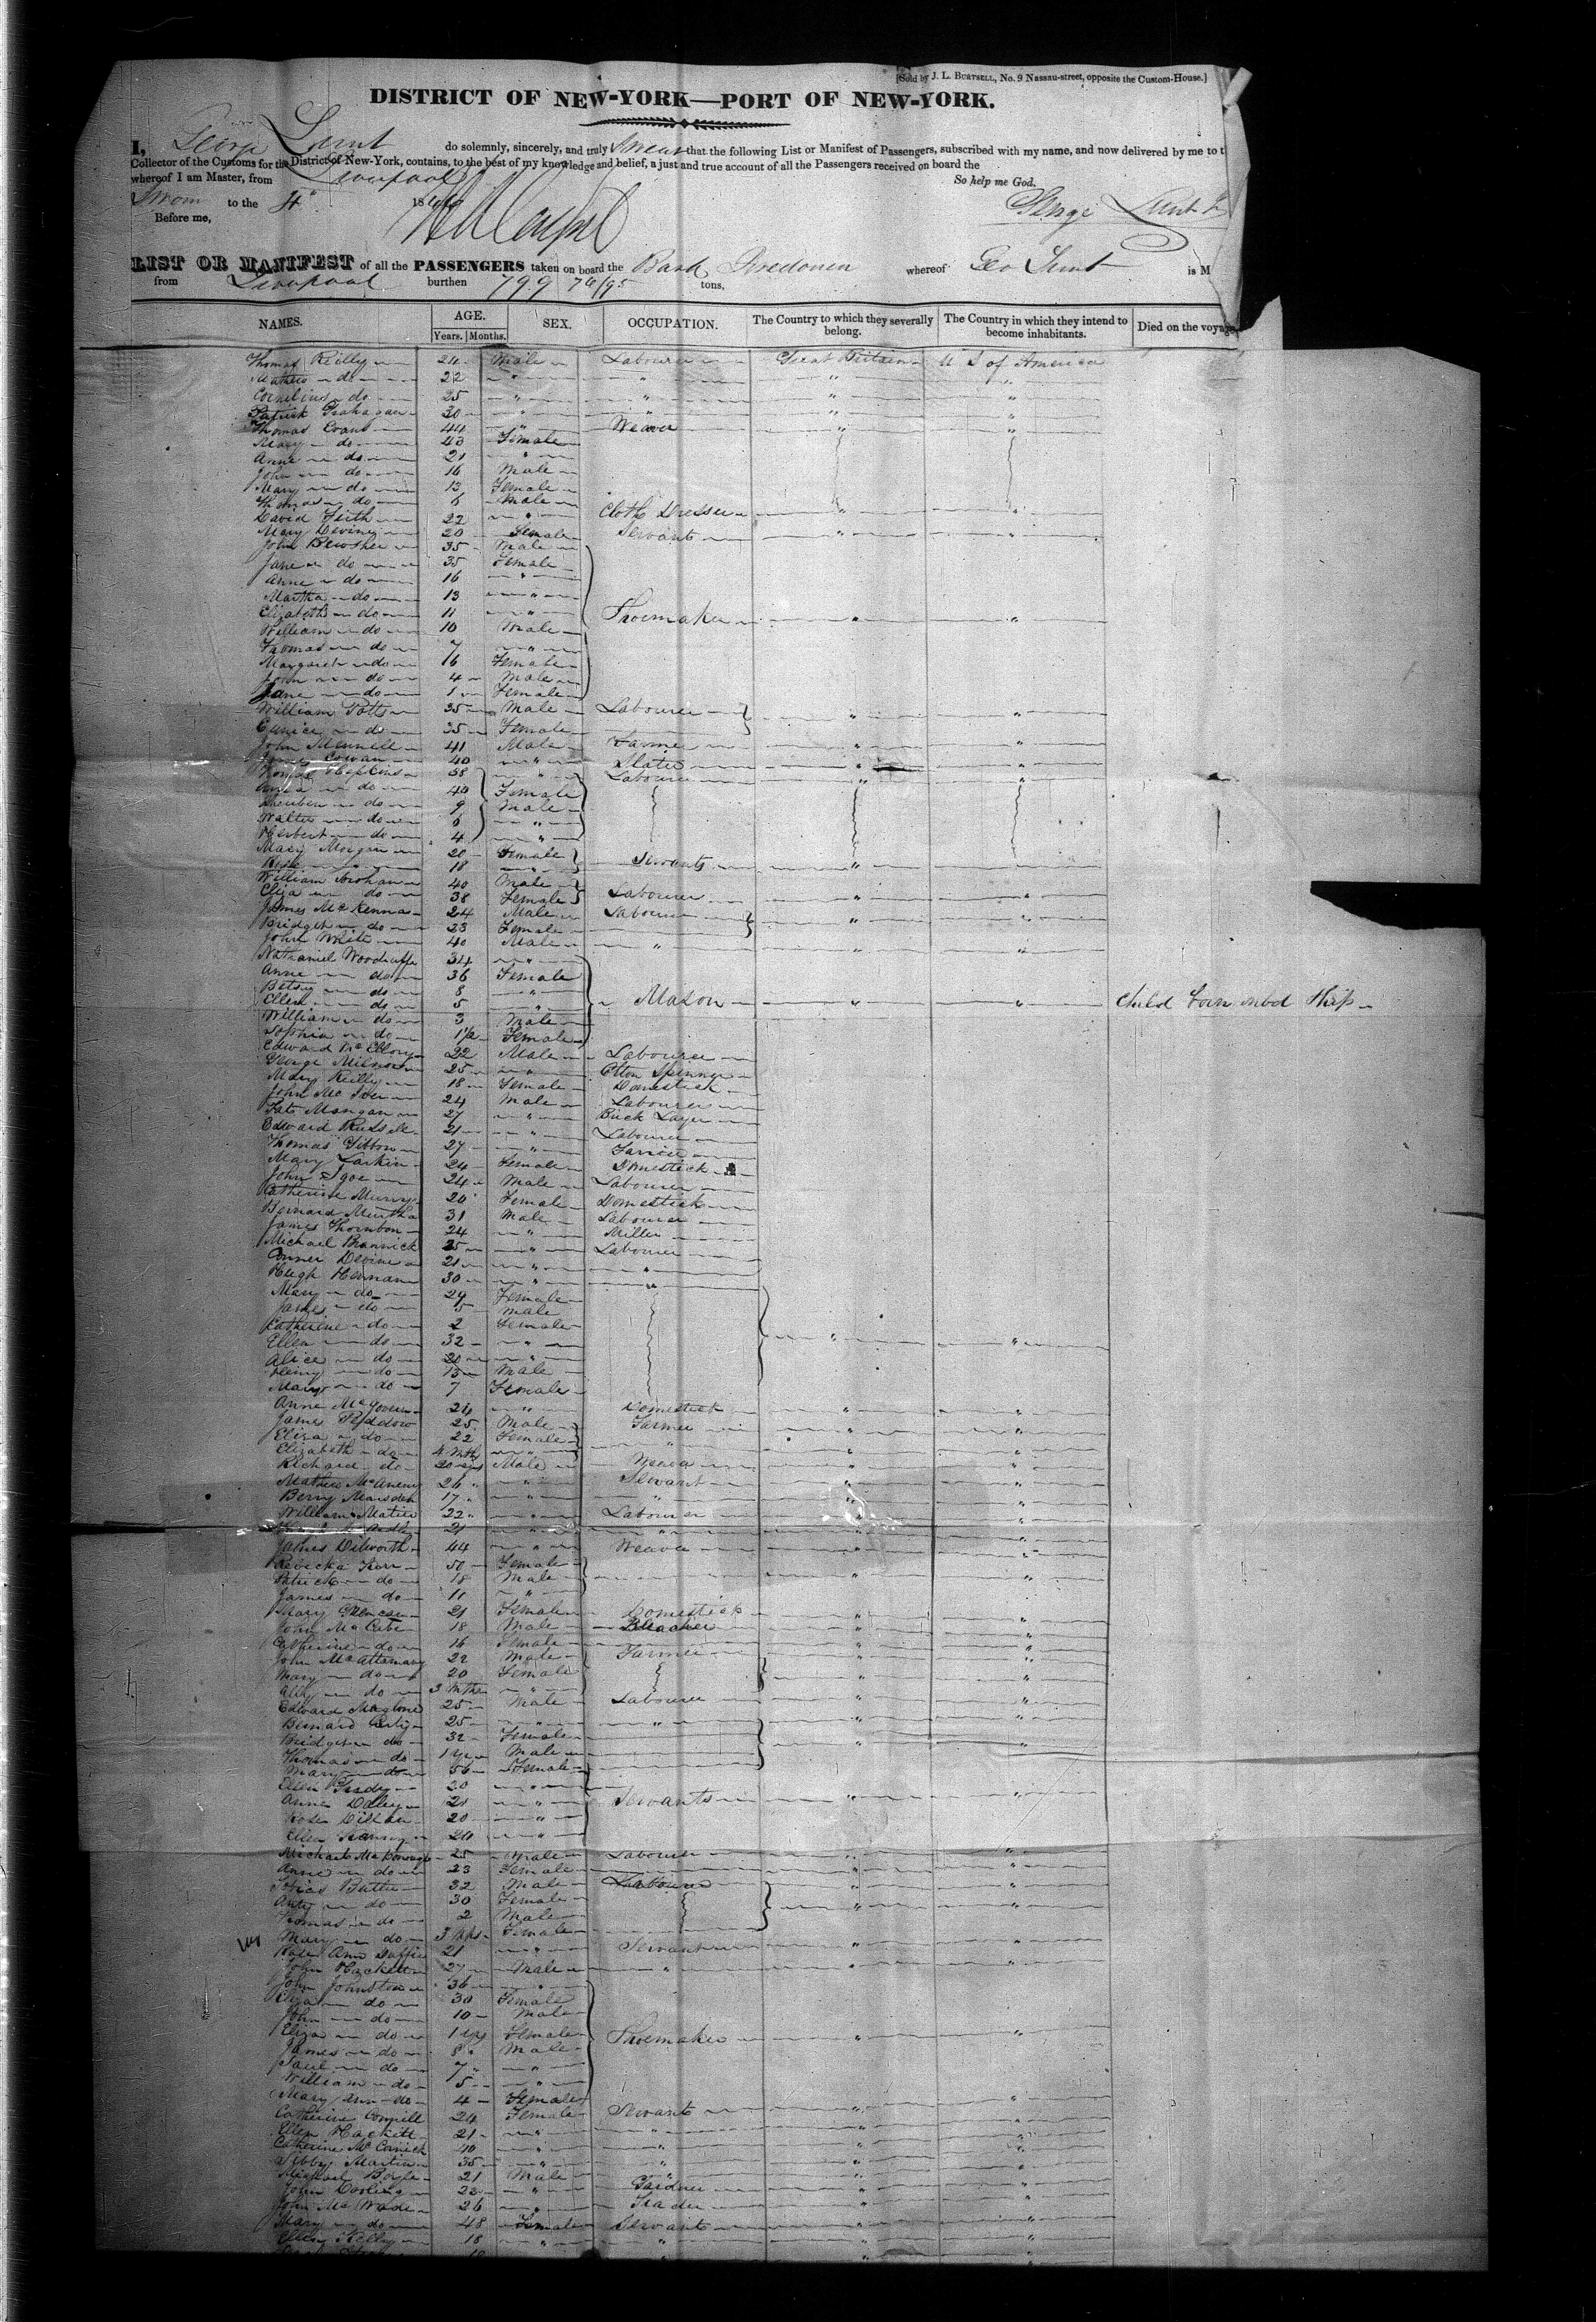 [Sold by J. L. BURTSELL, No. 9 Nassau-street, opposite the Custom-House.]
DISTRICT OF NEW-YORK—PORT OF NEW-YORK.
I, George Lunt do solemnly, sincerely, and truly Swear that the following List or Manifest of Passengers, subscribed with my name, and now delivered by me to t
Collector of the Customs for the District of New-York, contains, to the best of my knowledge and belief, a just and true account of all the Passengers received on board the
whereof I am Master, from Liverpool
So help me God.
Sworn to the 4 18
George Lunt
Before me,
LIST OR MANIFEST of all the PASSENGERS taken on board the Bark whereof Geo Lunt is M
from Liverpool burthen 799 74/95 tons,
NAMES. AGE. SEX. OCCUPATION. The Country to which they severally belong. The Country in which they intend to become inhabitants. Died on the voyage
Years. Months.
Thomas Reilly 24 Male Labourer Great Britain U S of America
Mathew do 22 " " " "
Cornelius do 25 " " " "
Patrick 30 " " " "
Thomas Evans 44 " Weaver " "
Mary do 43 Female
Anne do 21 "
John do 16 Male
Mary do 13 Female
Thomas do 6 Male
David Firth 22 " Cloth Dresser " "
Mary Devine 20 Female Servant "
John Bewsher 35 Male
Jane do 35 Female
Anne do 16 "
Martha do 13 "
Elizabeth do 11 " Shoemaker " "
William do 10 Male
Thomas do 7 "
Margaret do 16 Female
John do 4 Male
Jane do 1 Female
William Potts 35 Male Labourer " "
Eunice do 35 Female
John Mennell 41 Male Farmer " "
Cowan 40 " Slater " "
Hopkins 38 " Labourer " "
do 40 Female
Reuben do 9 Male
Walter do 6 "
Herbert do 4 "
Mary Morgan 20 Female Servants "
Rose 18 "
William 40 Male Labourer " "
Eliza do 38 Female
James McKenna 24 Male Labourer " "
Bridget do 23 Female
John White 40 Male " " "
Nathaniel Woodruffe 34 "
Anne do 36 Female
Betsy do 8 "
Ellen do 5 " Mason " " Child born onbd Ship
William do 3 Male
Sophia do 1½ Female
Edward McEllory 22 Male Labourer
George Milnor 25 " Cotton Spinner
Mary Reilly 18 Female Domestick
John 24 Male Labourer
Pat Mangan 27 " Brick Layer
Edward Russell 21 " Labourer
Thomas Gibbon 27 " Farrier
Mary Larkin 24 Female Domestick
John Igoe 24 Male Labourer
Catherine Murry 20 Female Domestick
Bernard Murtha 31 Male Labourer
James Thornton 24 " Miller
Michael Brannick 25 " Labourer
Devine 21 " "
Hugh Heenan 30 " "
Mary do 29 Female
James do 5 male
Catherine do 2 Female
Ellen do 32 " " "
Alice do 20 "
Henry do 13 Male
Mary do 7 Female
Anne McGovern 24 " Domestick " "
James Peddow 25 Male Farmer " "
Eliza do 22 Female
Elizabeth do 4 mths " " "
Richard do 20 yrs Male Weaver " "
Mathew McAneny 26 " Servant " "
Berry Marsden 17 " " " "
William Matier 22 " Labourer " "
21 " " " "
James Dilworth 44 " Weaver " "
Rebecka Kerr 50 Female
Patrick do 18 Male " "
James do 11 "
Mary 21 Female Domestick " "
John McCabe 18 Male Bleacher " "
Catherine do 16 Female " "
John McAttamany 22 Male Farmer " "
Mary do 20 Female " "
Ally do 3 Mths "
Edward Maglone 25 Male Labourer " "
Bernard 25 " " " "
Bridget do 32 Female " "
Thomas do 1 yr Male
Mary do 56 Female
Ellen 20 "
Anne Daley 21 " Servants " "
Rose Dillan 20 "
Ellen 20 "
Michael McDonough 25 Male Labourer " "
Anne do 23 Female "
Butler 32 Male Labourer " "
do 30 Female " "
Thomas do 2 Male
Mary do 3 Mths Female
Rose Ann Duffie 21 " Servant " "
John Hackett 27 Male " " "
John Johnston 36 "
Eliza do 30 Female
John do 10 Male
Eliza do 1 yr Female Shoemaker " "
James do 8 Male
Paul do 7 "
William do 5 "
Mary Ann do 4 Female "
Catherine 24 Female Servant " "
Ellen Hackett 21 " " " "
Catherine McCormick 40 " " " "
Sibby Martin 35 " " " "
Michael Boyle 21 Male " " "
John 22 " Gardner " "
John McWade 26 " Trader " "
Mary do 48 Female Servant " "
Ellen Kelly 18 " " " "